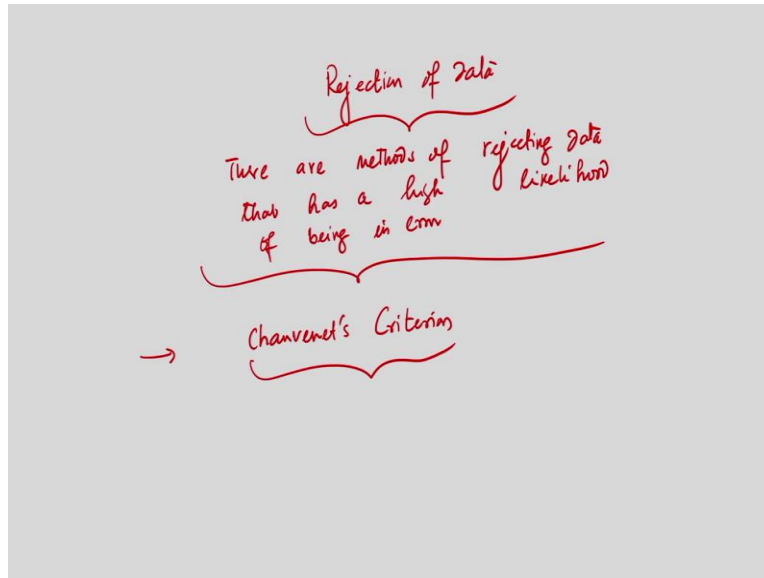 Rejection of Data
There are methods of rejecting data
that has a high likelihood
of being in error
→ Chauvenet's Criterion